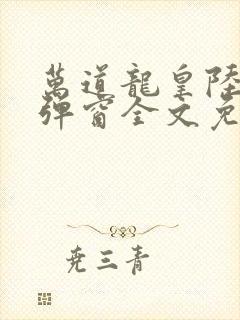 萬道龍皇陸
彈窗全文免
尭三青